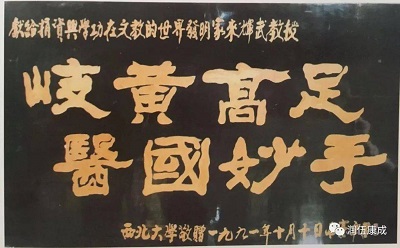 献给捐資興学功在文教的世界發明家來輝武教授
岐黄高足
醫國妙手
西北大学敬贈一九九一年十月十日
润伍康成